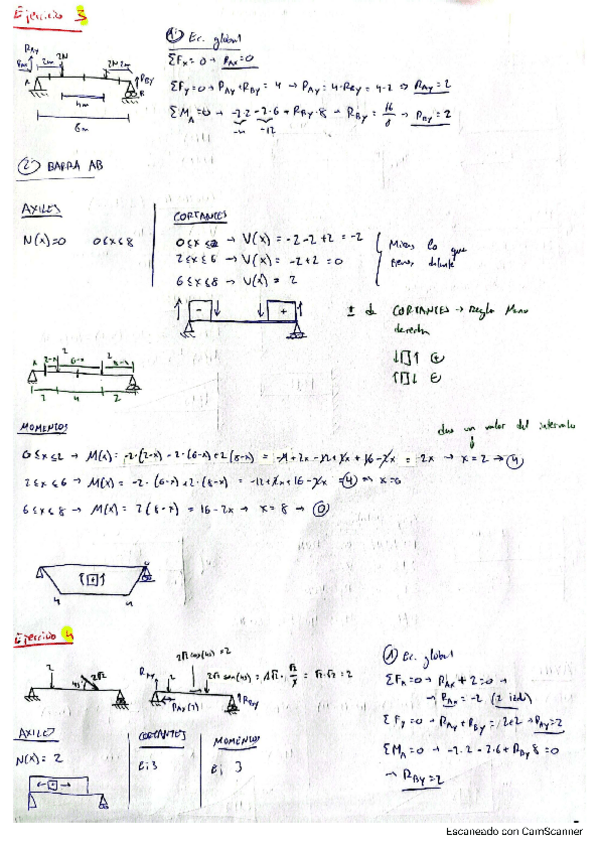 Ejercicio 3
① Ec. global
ΣFx = 0 → RAx = 0
RAy
RAx
2m
2N
2N 2m
RBy
A
B
4m
6m
ΣFy = 0 → RAy + RBy = 4 → RAy = 4 - RBy = 4-2 → RAy = 2
ΣMA = 0 → -2·2 - 2·6 + RBy·8 → RBy = 16/8 → RBy = 2
-12
② BARRA AB
AXILES
N(x)=0 0≤x≤8
CORTANTES
0≤x≤2 → V(x) = -2-2+2 = -2
2≤x≤6 → V(x) = -2+2 = 0
6≤x≤8 → V(x) = 2
Miras lo que
tienes delante
- +
± de CORTANTES → Regla Mano
derecha
↓□↑ ⊕
↑□↓ ⊖
A 2-x 2 6-x 2 8-x
2 4 2
MOMENTOS
das un valor del intervalo
0≤x≤2 → M(x) = -2·(2-x) - 2·(6-x) + 2(8-x) = -4+2x-12+2x+16-2x = 2x → x=2 → ④
2≤x≤6 → M(x) = -2·(6-x) + 2·(8-x) = -12+2x+16-2x = ④ → x=6
6≤x≤8 → M(x) = 2(8-x) = 16-2x → x=8 → ⓪
+
4 4
Ejercicio 4
2
45
2√2
2√2 cos(45) = 2
RAy
2
2√2 sen(45) = 2√2 · √2/2 = √2·√2 = 2
RAx (2)
RBy
① Ec. global
ΣFx = 0 → RAx + 2 = 0 →
→ RAx = -2 (2 izda)
ΣFy = 0 → RAy + RBy = 2+2 → RAy = 2
ΣMA = 0 → -2·2 - 2·6 + RBy 8 = 0
→ RBy = 2
AXILES
N(x) = 2
← + →
CORTANTES
Ej 3
MOMENTOS
Ej 3
Escaneado con CamScanner